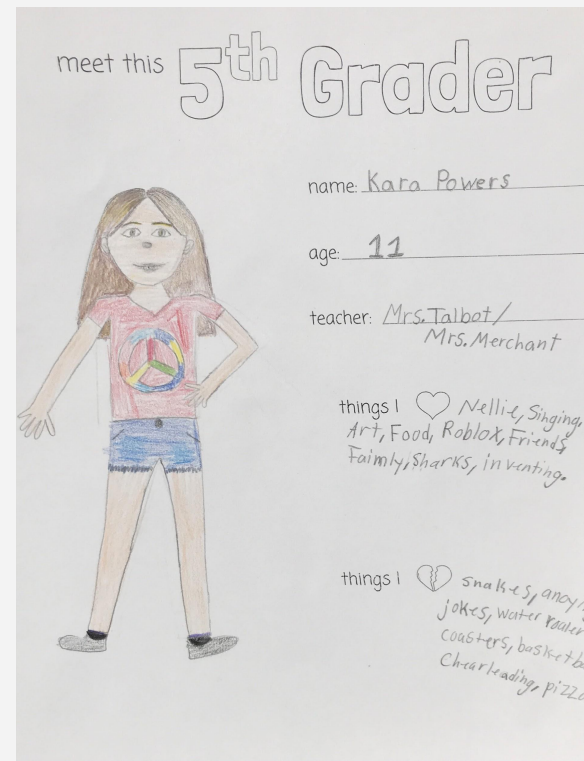 meet this 5th Grader
name: Kara Powers
age: 11
teacher: Mrs. Talbot/
Mrs. Merchant
things I Nellie, Singing,
Art, Food, Roblox, Friends,
Faimly, Sharks, inventing.
things I snakes,
jokes, water
coasters,
Chearleading,